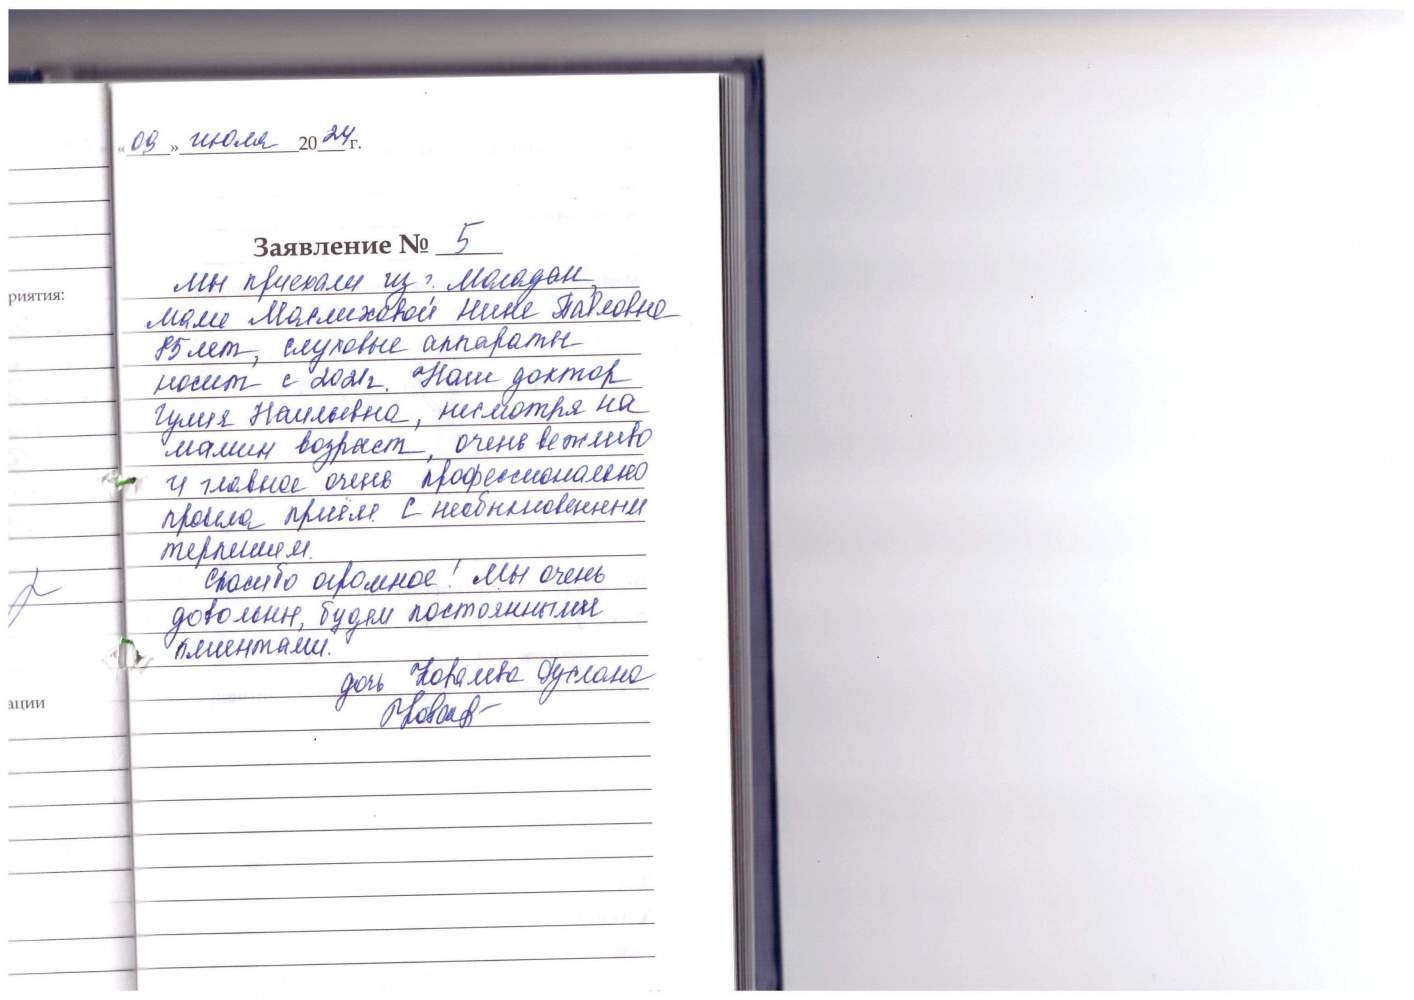 «09» июля 2024 г.
Заявление № 5
Мы приехали из г. Магадан,
маме Маслиховой Нине Павловне
85 лет, слуховые аппараты
носит с 2021г. Наш доктор
Гулия Наильевна, несмотря на
мамин возраст, очень вежливо
и главное очень профессионально
провела приём. С необыкновенным
терпением.
Спасибо огромное! Мы очень
довольны, будем постоянными
клиентами.
дочь Ковалева Руслана
риятия:
ации